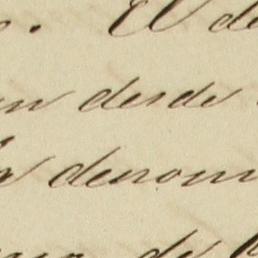 . El de
n desde
a denomi
de